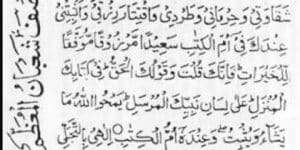 شَقَاوَتِيْ وَحِرْمَانِيْ وَطَرْدِيْ وَاقْتِتَارَ رِزْقِيْ وَاَثْبِتْنِيْ
عِنْدَكَ فِيْ اُمِّ الْكِتٰبِ سَعِيْدًا مَّرْزُوْقًا مُّوَفَّقًا
لِّلْخَيْرَاتِ فَاِنَّكَ قُلْتَ وَقَوْلُكَ الْحَقُّ فِيْ كِتَابِكَ
الْمُنَزَّلِ عَلٰى لِسَانِ نَبِيِّكَ الْمُرْسَلِ يَمْحُوا اللّٰهُ مَا
يَشَآءُ وَيُثْبِتُ وَعِنْدَهٗ اُمُّ الْكِتٰبِ اِلٰهِيْ بِالتَّجَلِّي
نصف شعبان المعظم